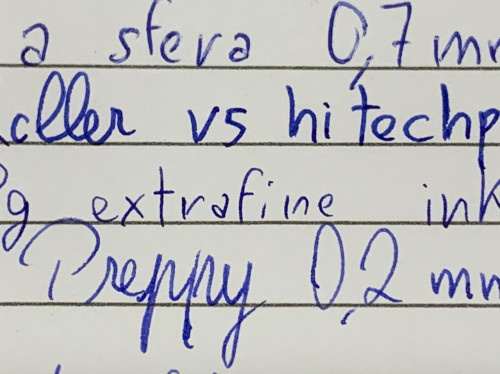 a sfera 0,7 mm
oller vs hitechp
g extrafine ink
Preppy 0,2 mm